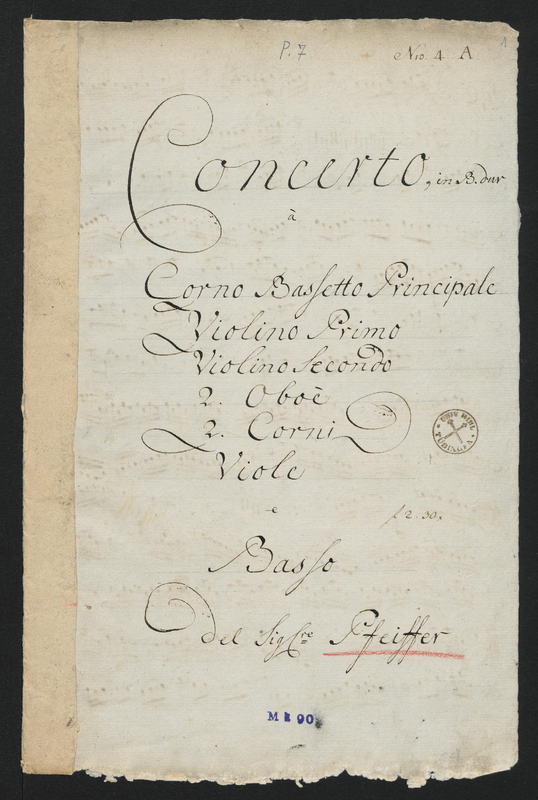 P. 7
Nro. 4 A
1
Concerto, in B.dur
à
Corno Bassetto Principale
Violino Primo
Violino Secondo
2. Oboè
2. Corni
Viole
UNIV BIBL
TÜBINGEN
e
f 2.30.
Basso
del Sigre Pfeiffer
M k 90